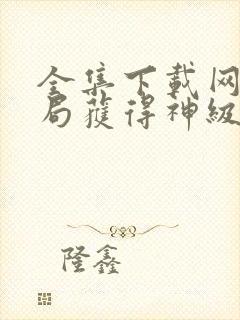 全集下载网
局獲得神級
隆鑫